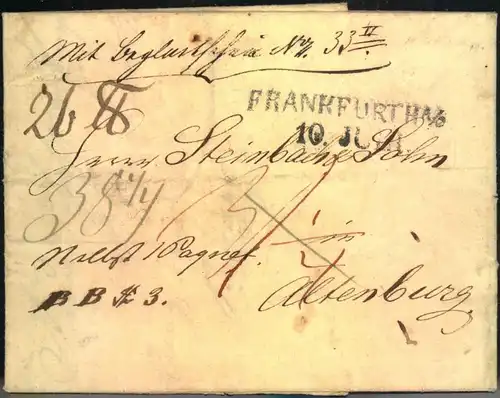 Mit Begleitschein No. 33 II
26 ℔
FRANKFURT A/O
10 JUNI
Herrn Steinbachs Sohn
38 1/4
Nebst 1 Paquet
in
BB & 3.
Altenburg